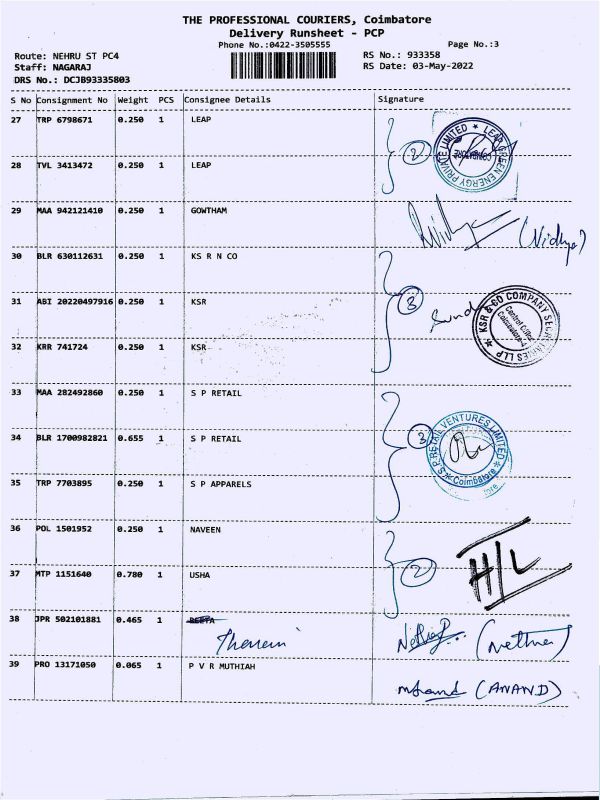 THE PROFESSIONAL COURIERS, Coimbatore
Delivery Runsheet - PCP
Phone No.:0422-3505555
Page No.:3
Route: NEHRU ST PC4
RS No.: 933358
Staff: NAGARAJ
RS Date: 03-May-2022
DRS No.: DCJB93335803
S No Consignment No Weight PCS Consignee Details Signature
27 TRP 6798671 0.250 1 LEAP
2
PRIVATE LIMITED * LEAP GREEN ENERGY
COIMBATORE
28 TVL 3413472 0.250 1 LEAP
29 MAA 942121410 0.250 1 GOWTHAM
(Nidhya)
30 BLR 630112631 0.250 1 KS R N CO
31 ABI 20220497916 0.250 1 KSR
3
KSR & CO COMPANY SECRETARIES LLP *
Central Office
Coimbatore-4
32 KRR 741724 0.250 1 KSR
33 MAA 282492860 0.250 1 S P RETAIL
34 BLR 1700982821 0.655 1 S P RETAIL
3
S.P.RETAIL VENTURES LIMITED
* Coimbatore *
35 TRP 7703895 0.250 1 S P APPARELS
36 POL 1501952 0.250 1 NAVEEN
37 MTP 1151640 0.780 1 USHA
2
H/L
38 JPR 502101881 0.465 1
39 PRO 13171050 0.065 1 P V R MUTHIAH
(ANAND)